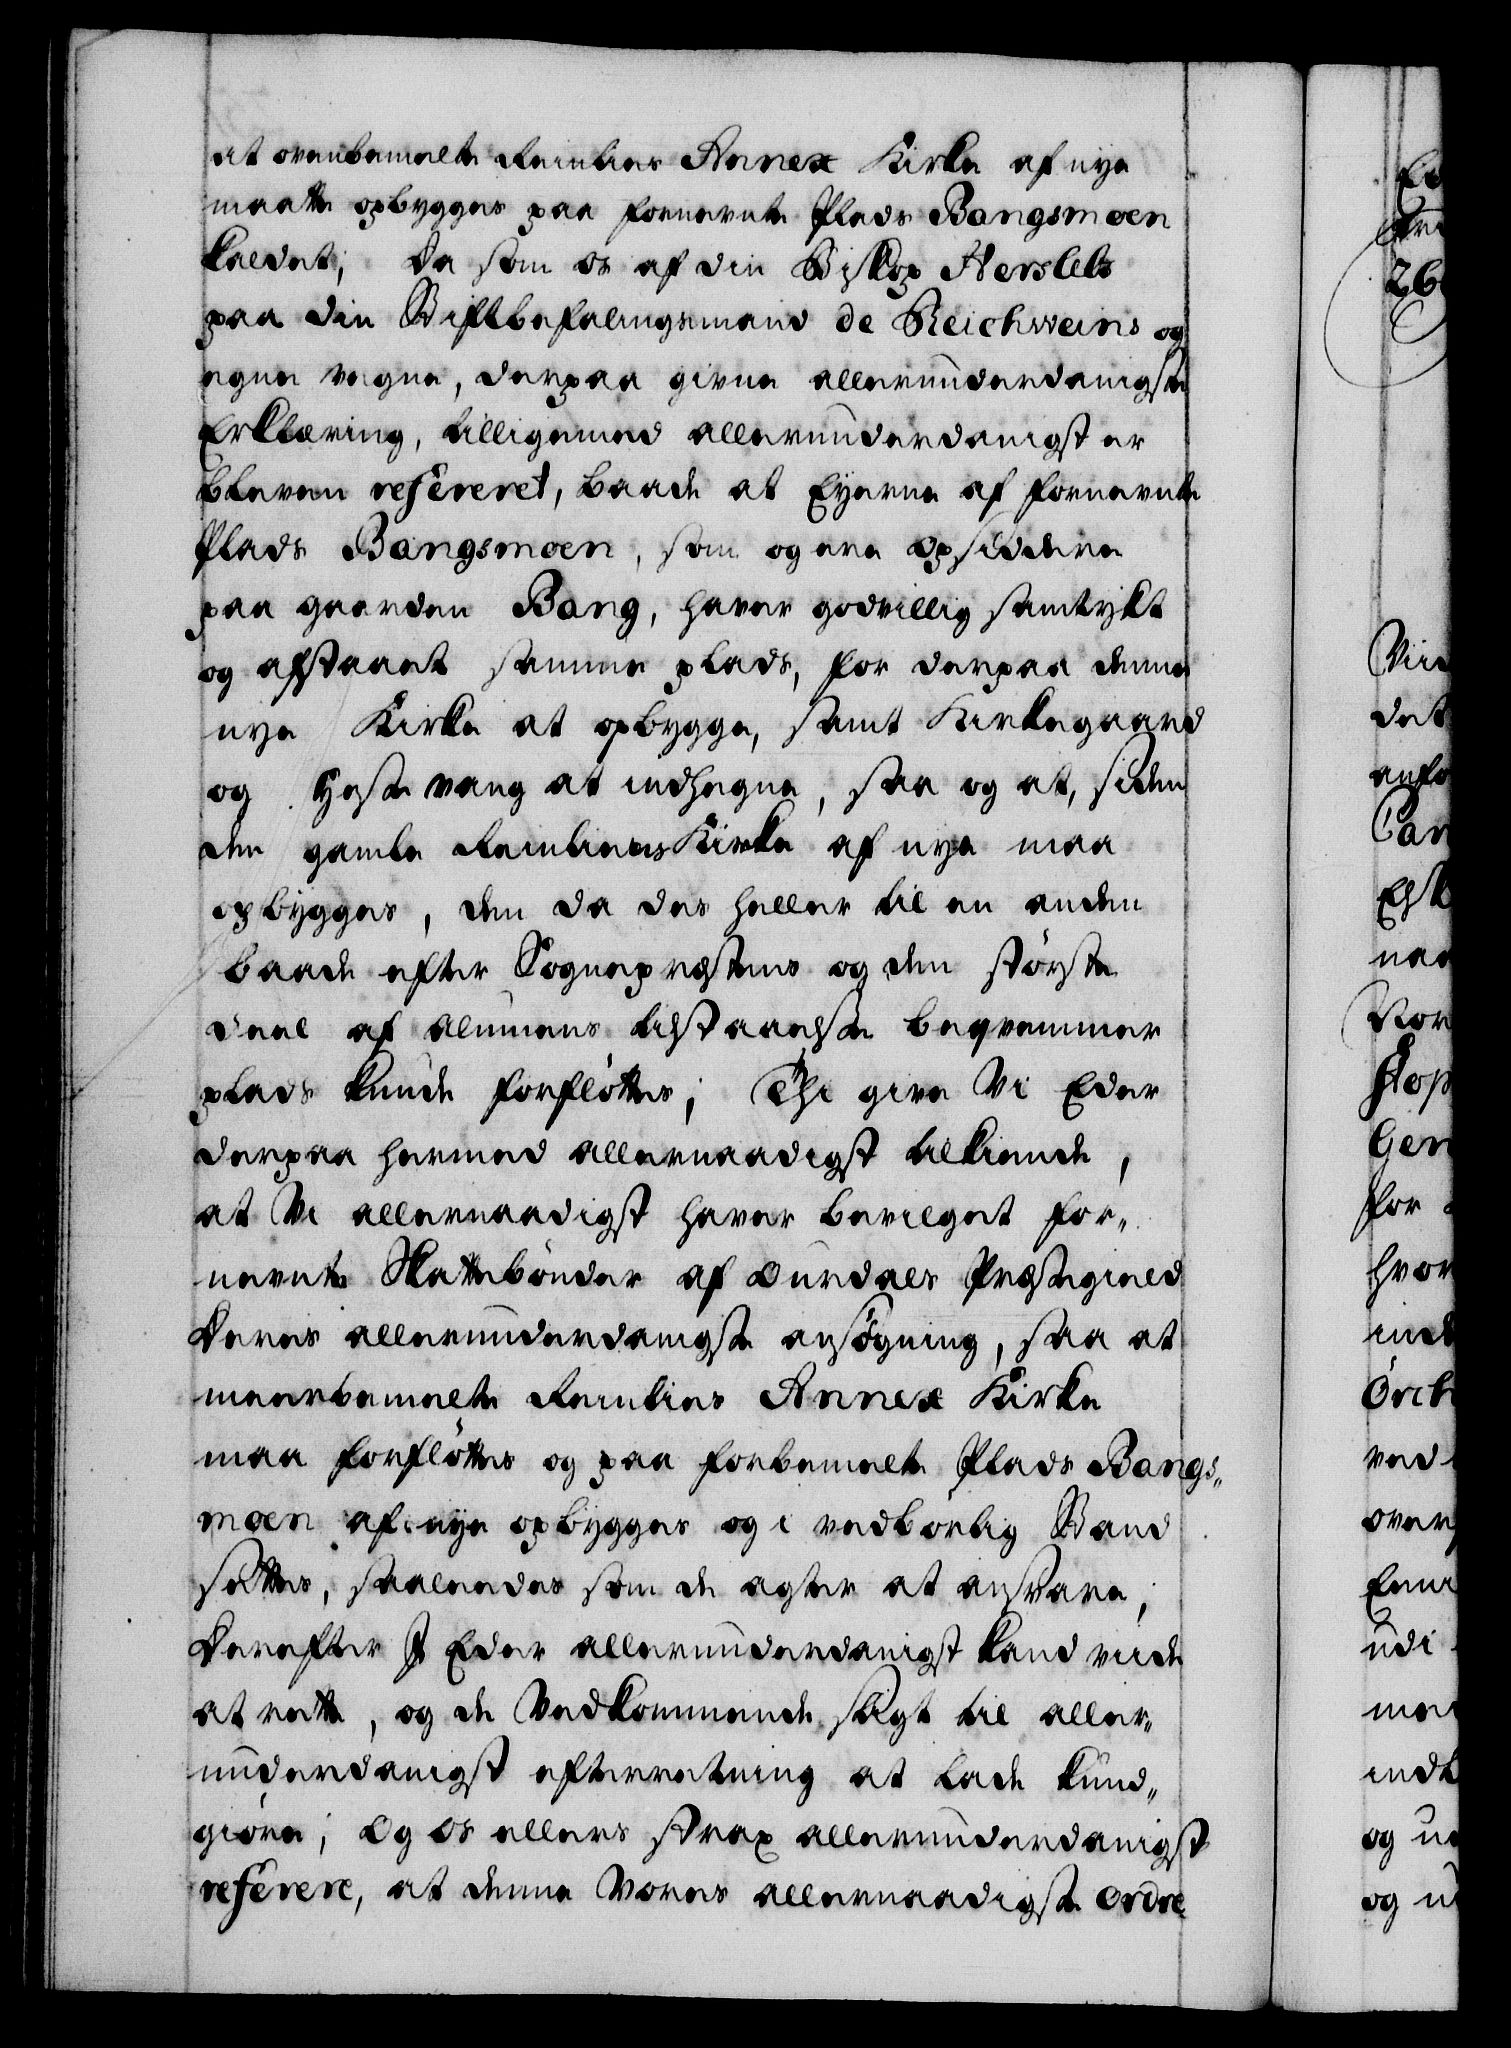 at ovenbemelte Reinlies Annex Kirke af nye
maatte opbygges paa fornevnte Plads Bangsmoen
kaldet; Da som os af din Biskop Herslebs
paa din Stiftbefalingsmand de Reichweins og
egne vegne, derpaa givne allerunderdanigste
Erklæring, tilligemed allerunderdanigst er
bleven refereret, baade at Eyerne af fornevnte
Plads Bangsmoen, som og ere Opsiddere
paa gaarden Bang, haver godvillig samtykt
og afstaaet samme plads, for derpaa denne
nye Kirke at opbygge, samt Kirkegaard
og Heste vang at indhegne, saa og at, siden
den gamle Reinlies Kirke af nye maa
opbygges, den da des heller til en anden
baade efter Sognepræstens og den største
deel af Almuens tilstaaelse beqvemmer
plads kunde forfløttes; Thi give Vi Eder
derpaa hermed allernaadigst tilkiende,
at Vi allernaadigst haver bevilget for„
nevnte Skattebønder af Ourdals Præstegield
deres allerunderdanigste ansøgning, saa at
meerbemelte Reinlies Annex Kirke
maa forfløttes og paa forbemelte Plads Bangs„
moen af nye opbygges og i vedbørlig Stand
settes, saaledes som de agter at ansvare;
Derefter I Eder allerunderdanigst kand viide
at rette, og de Vedkommende sligt til aller„
underdanigst efterretning at lade kund„
giøre; Og os ellers strax allerunderdanigst
referere, at denne Vores allernaadigste Ordre